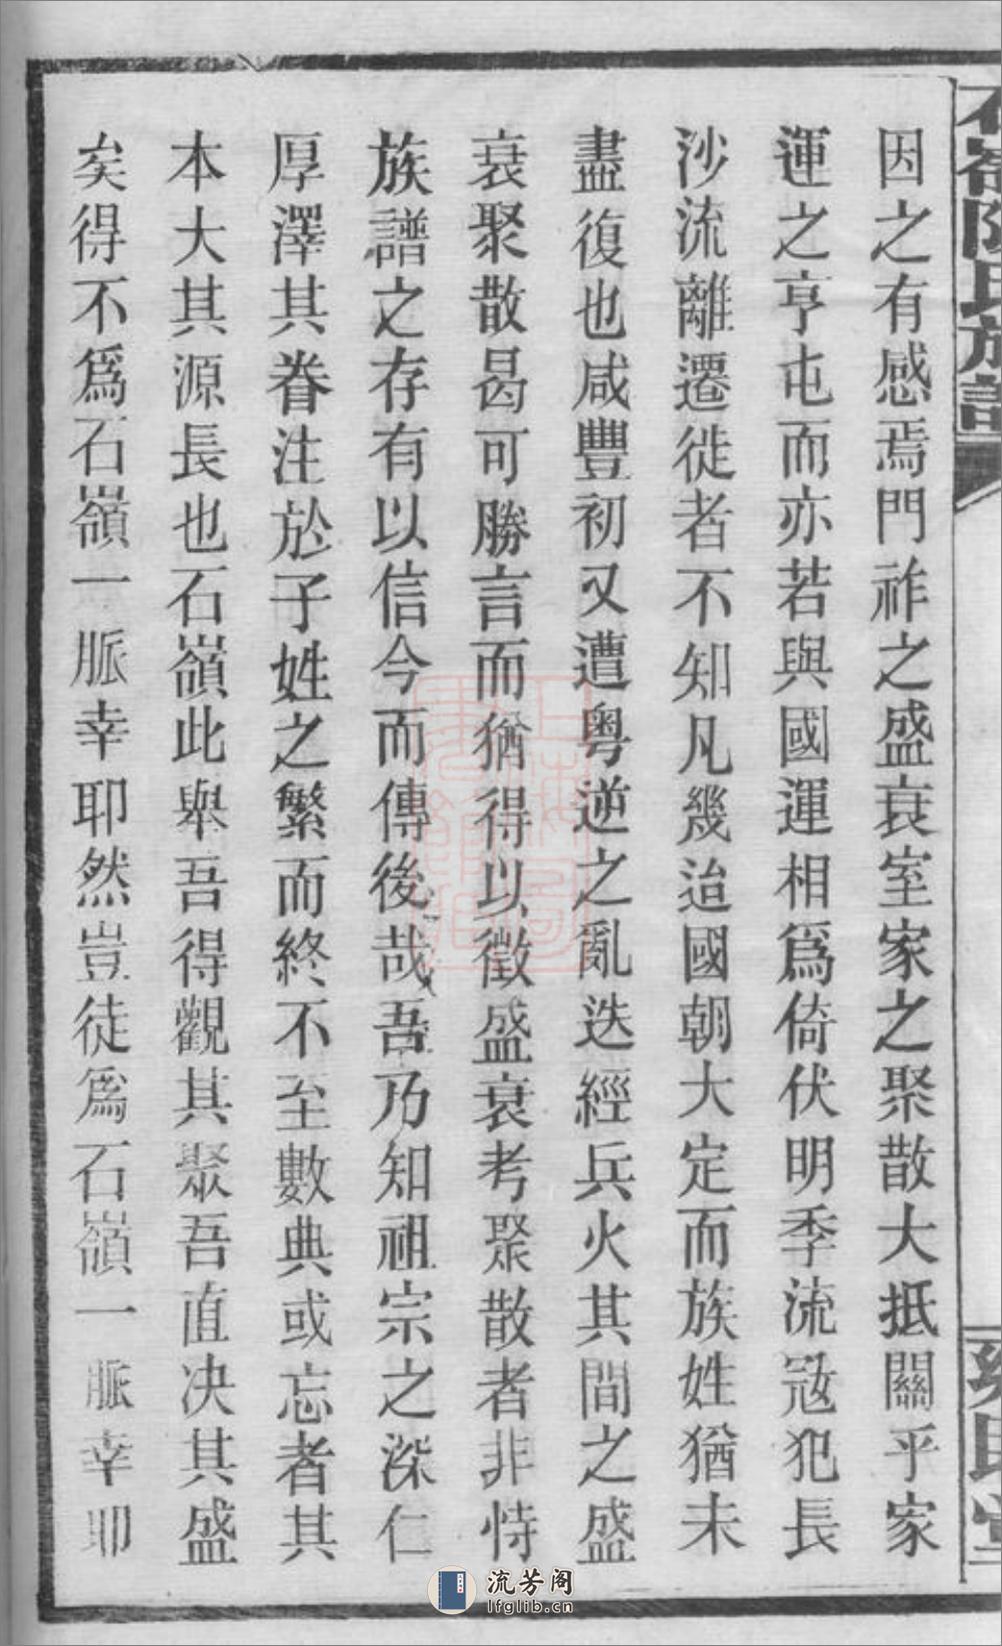 因之有感焉門祚之盛衰室家之聚散大抵關乎家
運之亨屯而亦若與國運相爲倚伏明季流寇犯長
沙流離遷徙者不知凡幾迨國朝大定而族姓猶未
盡復也咸豐初又遭粤逆之亂迭經兵火其間之盛
衰聚散曷可勝言而猶得以徵盛衰考聚散者非恃
族譜之存有以信今而傳後哉吾乃知祖宗之深仁
厚澤其眷注於子姓之繁而終不至數典或忘者其
本大其源長也石嶺此舉吾得觀其聚吾直决其盛
矣得不爲石嶺一脈幸耶然豈徒爲石嶺一脈幸耶
氏族譜
流芳阁
lfglib.cn